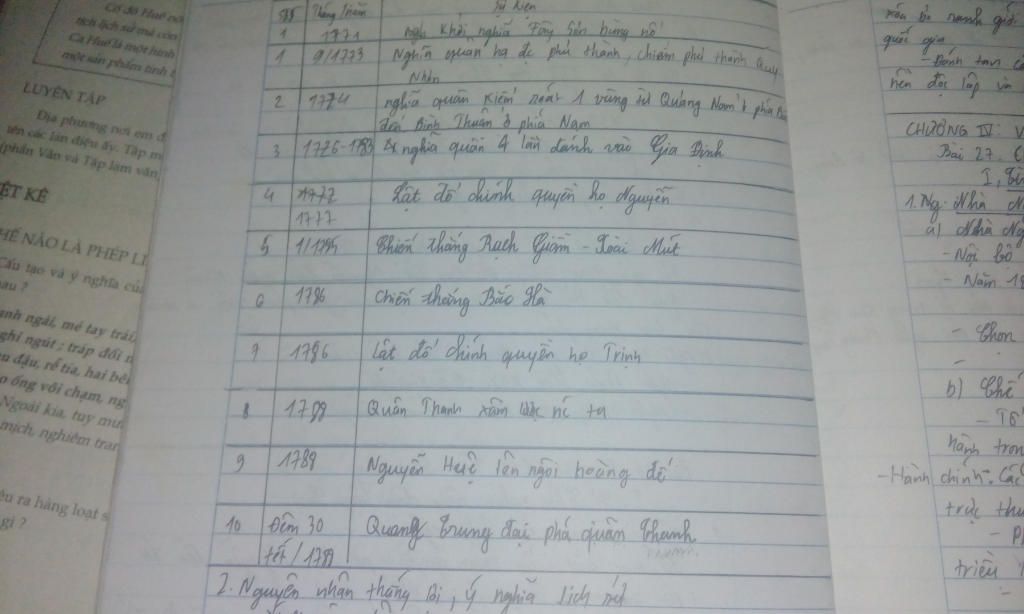 Cố đô Huế nổ
tích lịch sử mà còn
Ca Huế là một hình
một sản phẩm tinh t
LUYỆN TẬP
Địa phương nơi em đ
tên các làn điệu ấy. Tập m
(phần Văn và Tập làm văn
ỆT KÊ
HẾ NÀO LÀ PHÉP LI
Cấu tạo và ý nghĩa của
au ?
anh ngải, mé tay trái,
nghi ngút ; tráp đồi m
u đậu, rễ tía, hai bê
o ống vôi chạm, ng
Ngoài kia, tuy mư
mịch, nghiêm tran
êu ra hàng loạt s
gì ?
STT Tháng/năm Sự kiện
1 1771 khởi nghĩa Tây Sơn bùng nổ
1 9/1773 Nghĩa quân hạ đc phủ thành, chiếm phủ thành Quy
Nhơn
2 1774 nghĩa quân kiểm soát 1 vùng từ Quảng Nam ở phía Bắ
đến Bình Thuận ở phía Nam
3 1776-1783 nghĩa quân 4 lần đánh vào Gia Định
4 1777 Lật đổ chính quyền họ Nguyễn
1777
5 1/1785 Chiến thắng Rạch Gầm - Xoài Mút
6 1786 Chiến thắng Bảo Hà
7 1786 Lật đổ chính quyền họ Trịnh
8 1788 Quân Thanh xâm lược nc ta
9 1788 Nguyễn Huệ lên ngôi hoàng đế
10 Đêm 30 Quang Trung đại phá quân Thanh
tết/1789
2. Nguyên nhân thắng lợi, ý nghĩa lịch sử
xóa bỏ ranh giới
quốc gia
- Đánh tan
nền độc lập và
CHƯƠNG IV: V
Bài 27. C
I,
1. Ng. Nhà N
a) Nhà Ng
- Nội bộ
- Năm 18
- Chọn
-
b) Chế
- Tổ
hành tron
- Hành chính: Cá
trực thu
- P
triều
-